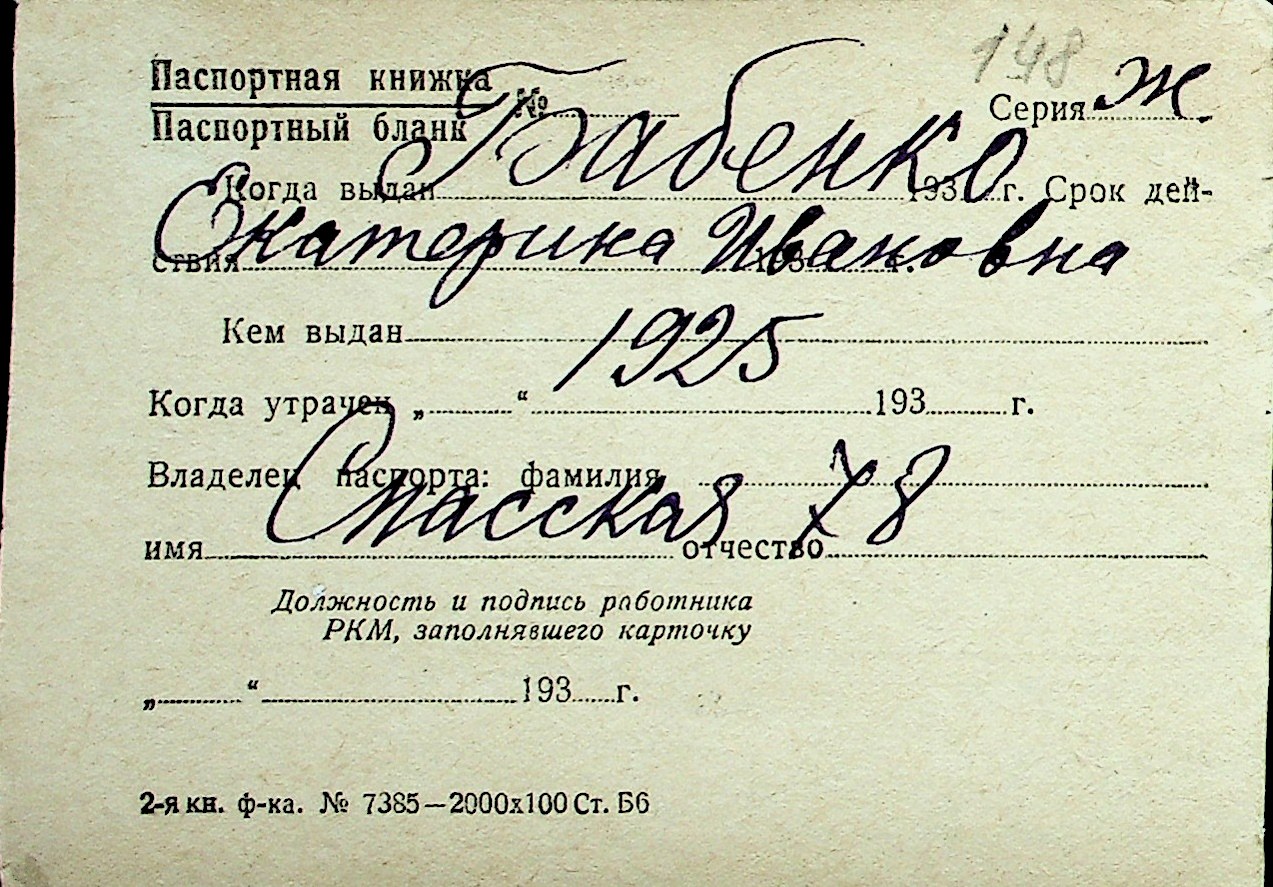 148
Паспортная книжка
Паспортный бланк № Серия ж.
Бабенко
Когда выдан 193 г. Срок дей-
Екатерина Ивановна
ствия 193 г.
Кем выдан
1925
Когда утрачен „ “ 193 г.
Владелец паспорта: фамилия
Спасская 78
имя отчество
Должность и подпись работника
РКМ, заполнявшего карточку
„ “ 193 г.
2-я кн. ф-ка. № 7385—2000х100 Ст. Б6